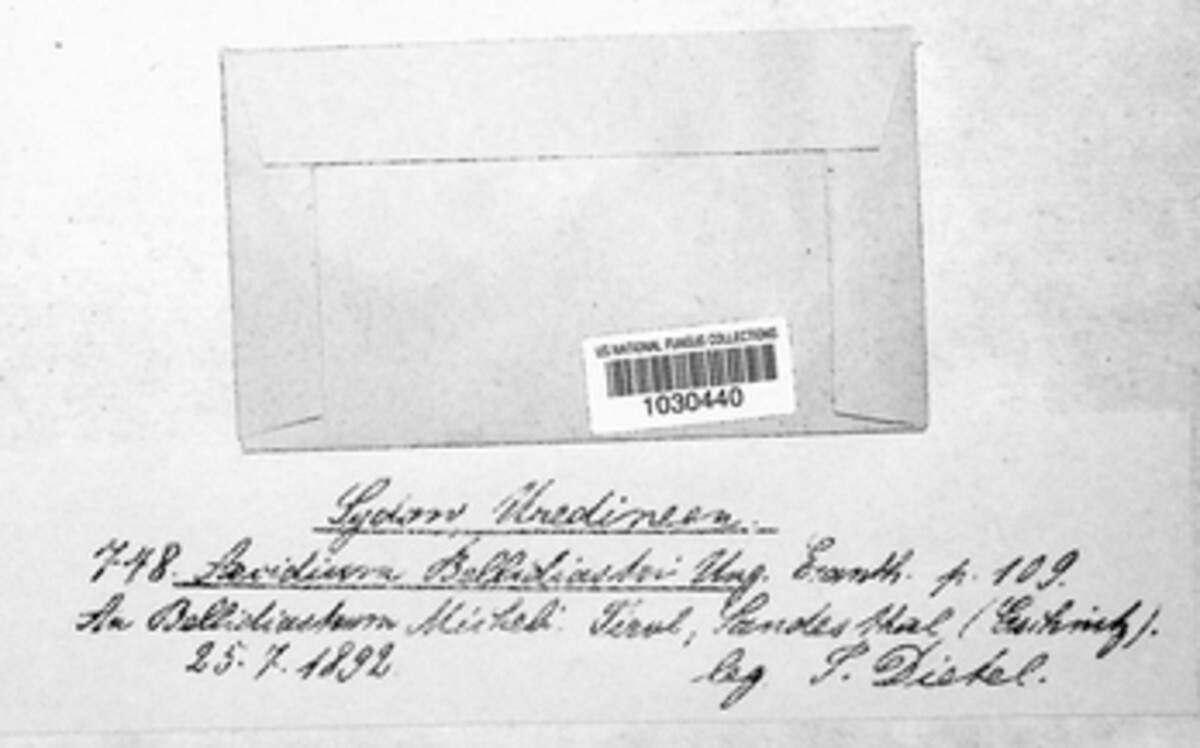 US NATIONAL FUNGUS COLLECTIONS
1030440
Sydow, Uredineen.
748. Aecidium Bellidiastri Ung. Exanth. p. 109.
An Bellidiastrum Micheli. Tirol, Sandesthal (Gschnitz).
25.7.1892. leg. P. Dietel.